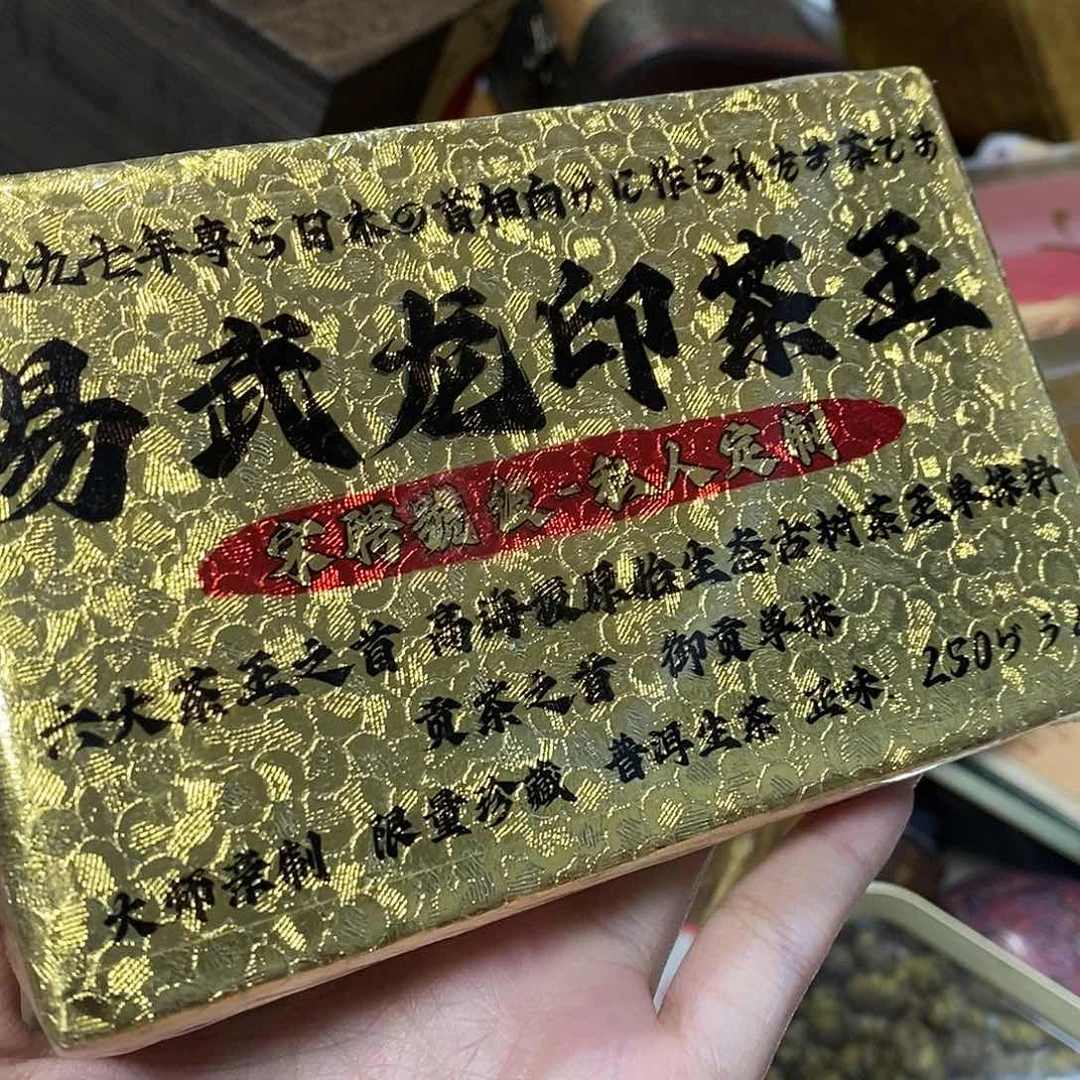 九九七年専ら日本の首相向けに作られたす茶です
易武龙印茶王
宋聘號级-私人定制
六大茶王之首 高海最原始生态古树茶王单株料
贡茶之首 御贡单株
大师茶制 限量珍藏 普洱生茶 正味 250ぐう